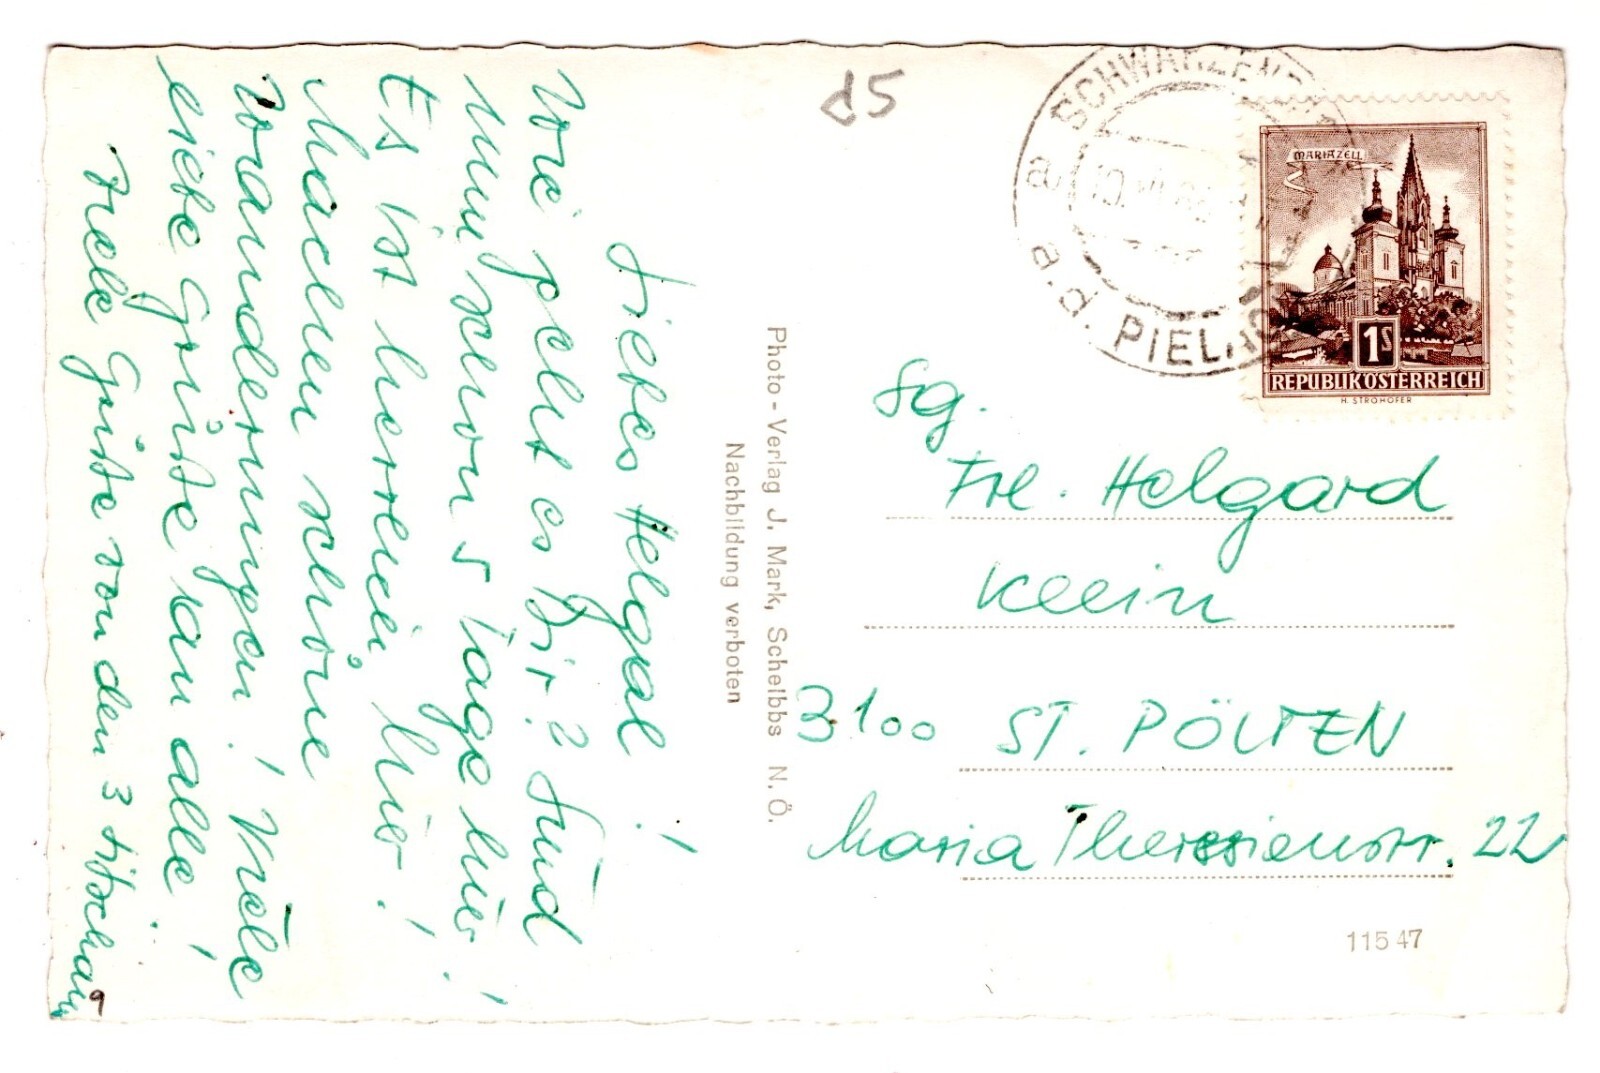 Liebes Helgal!
Wie geht es Dir? Sind
nun schon 5 Tage hier!
Es ist herrlich hier!
Machen schöne
Wanderungen! Viele
liebe Grüße an alle!
Viele Grüße von den 3
Photo-Verlag J. Mark, Scheibbs N.Ö.
Nachbildung verboten
d5
SCHWARZENB
a a.d. PIEL
MARIAZELL
1S
REPUBLIK ÖSTERREICH
H. STROHOFER
Sg.
Frl. Helgard
Klein
3100 ST. PÖLTEN
Maria Theresienstr. 22
115 47